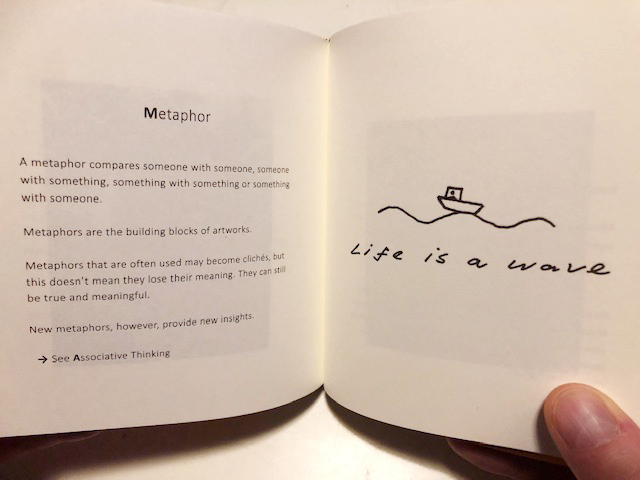 Metaphor
A metaphor compares someone with someone, someone
with something, something with something or something
with someone.
Metaphors are the building blocks of artworks.
Metaphors that are often used may become clichés, but
this doesn't mean they lose their meaning. They can still
be true and meaningful.
New metaphors, however, provide new insights.
→ See Associative Thinking
Life is a wave